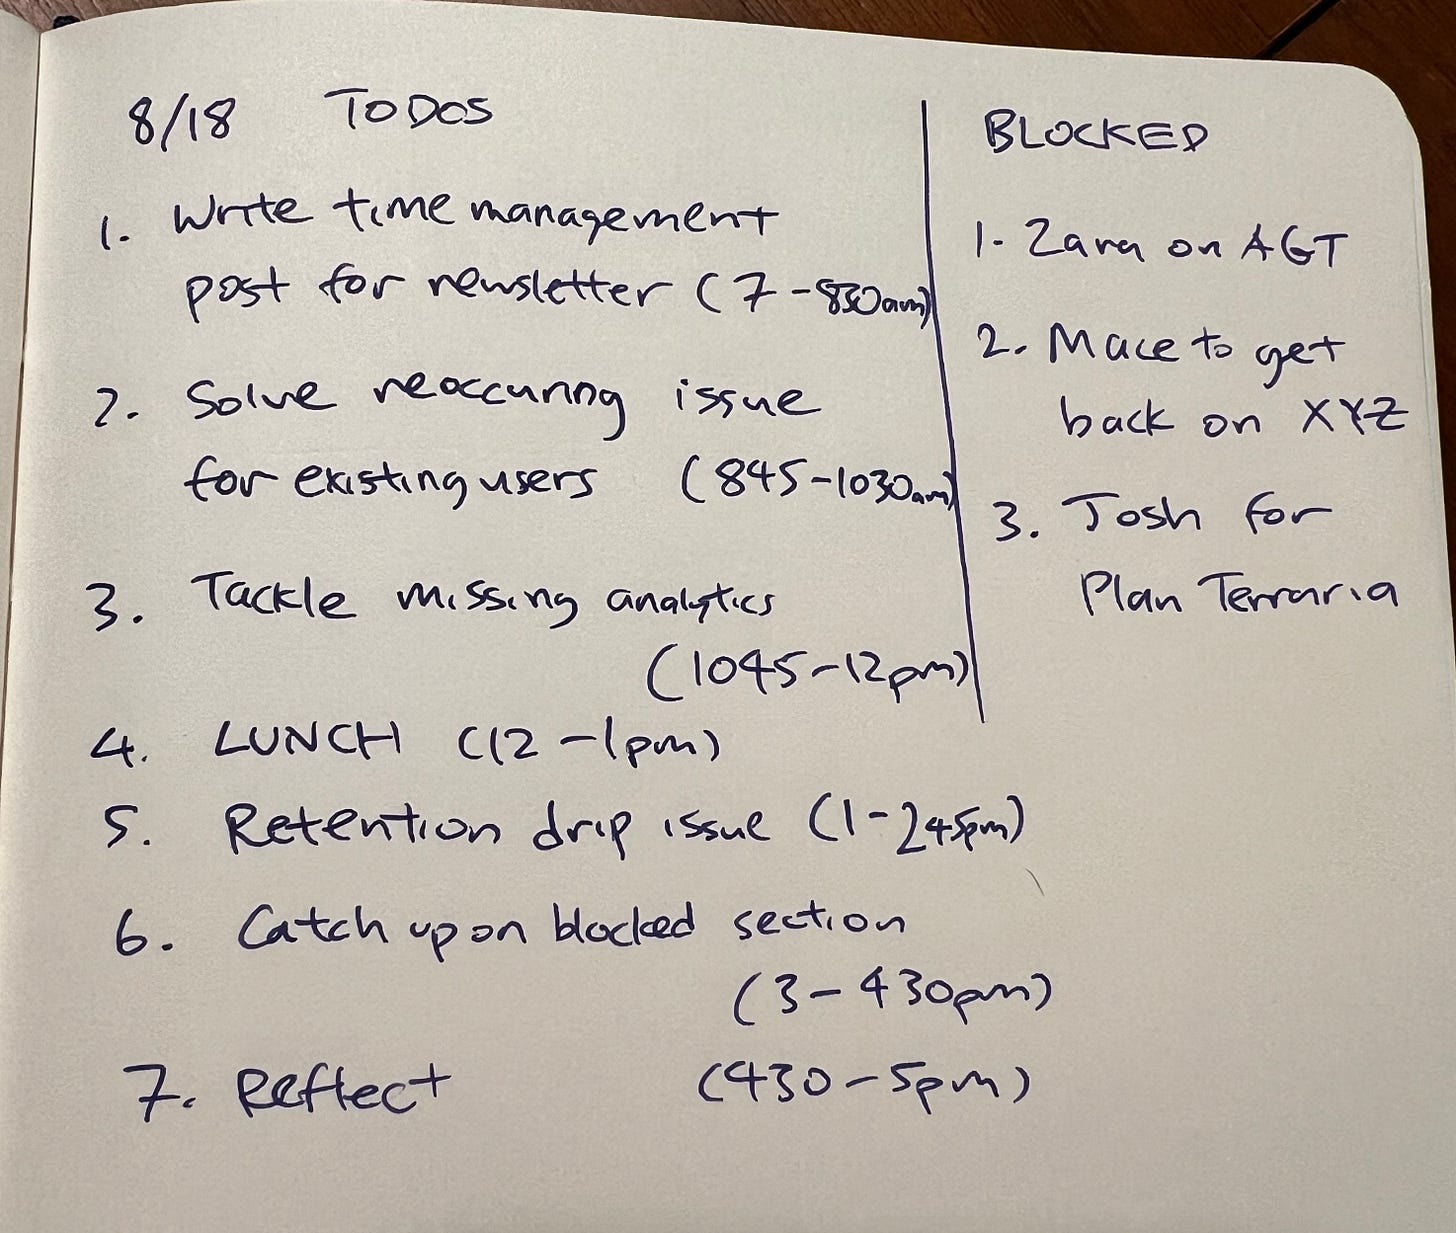 8/18 TODOS
1. Write time management
post for newsletter (7-830am)
2. Solve reoccuring issue
for existing users (845-1030am)
3. Tackle missing analytics
(1045-12pm)
4. LUNCH (12-1pm)
5. Retention drip issue (1-245pm)
6. Catch up on blocked section
(3-430pm)
7. Reflect (430-5pm)
BLOCKED
1. Zara on AGT
2. Mace to get
back on XYZ
3. Josh for
Plan Terraria